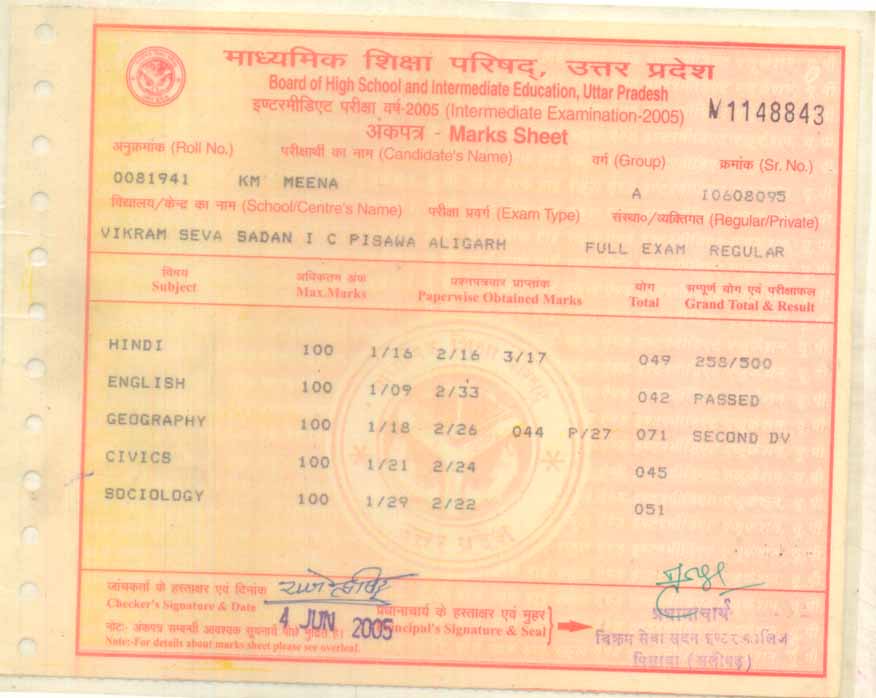 माध्यमिक शिक्षा परिषद्, उत्तर प्रदेश
Board of High School and Intermediate Education, Uttar Pradesh
इण्टरमीडिएट परीक्षा वर्ष-2005 (Intermediate Examination-2005) 1148843
अंकपत्र - Marks Sheet
अनुक्रमांक (Roll No.) परीक्षार्थी का नाम (Candidate's Name) वर्ग (Group) क्रमांक (Sr. No.)
0081941 KM MEENA A I0608095
विद्यालय/केन्द्र का नाम (School/Centre's Name) परीक्षा प्रवर्ग (Exam Type) संस्था०/व्यक्तिगत (Regular/Private)
VIKRAM SEVA SADAN I C PISAWA ALIGARH FULL EXAM REGULAR
विषय अधिकतम अंक प्रश्नपत्रवार प्राप्तांक योग सम्पूर्ण योग एवं परीक्षाफल
Subject Max.Marks Paperwise Obtained Marks Total Grand Total & Result
HINDI 100 1/16 2/16 3/17 049 258/500
ENGLISH 100 1/09 2/33 042 PASSED
GEOGRAPHY 100 1/18 2/26 044 P/27 071 SECOND DV
CIVICS 100 1/21 2/24 045
SOCIOLOGY 100 1/29 2/22 051
उत्तर प्रदेश
जांचकर्ता के हस्ताक्षर एवं दिनांक
Checker's Signature & Date
4 JUN 2005
प्रधानाचार्य के हस्ताक्षर एवं मुहर
Principal's Signature & Seal
नोट: अंकपत्र सम्बन्धी आवश्यक सूचनायें पीछे मुद्रित है।
Note:-For details about marks sheet please see overleaf.
प्रधानाचार्य
विक्रम सेवा सदन इण्टर कालिज
पिसावा (अलीगढ़)